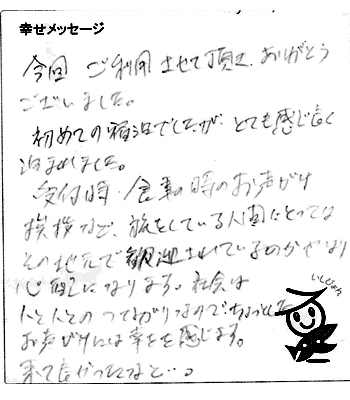 幸せメッセージ
今回 ご利用させて頂き、ありがとう
ございました。
初めての宿泊でしたが、とても感じ良く
泊まれました。
受付時・食事の時のお声がけ
挨拶など、旅をしている人間にとっては
その地元で歓迎されているのかやはり
心配になります。社会は
人と人とのつながりなので、ちょっとした
お声がけには幸せを感じます。
来て良かったなと…。